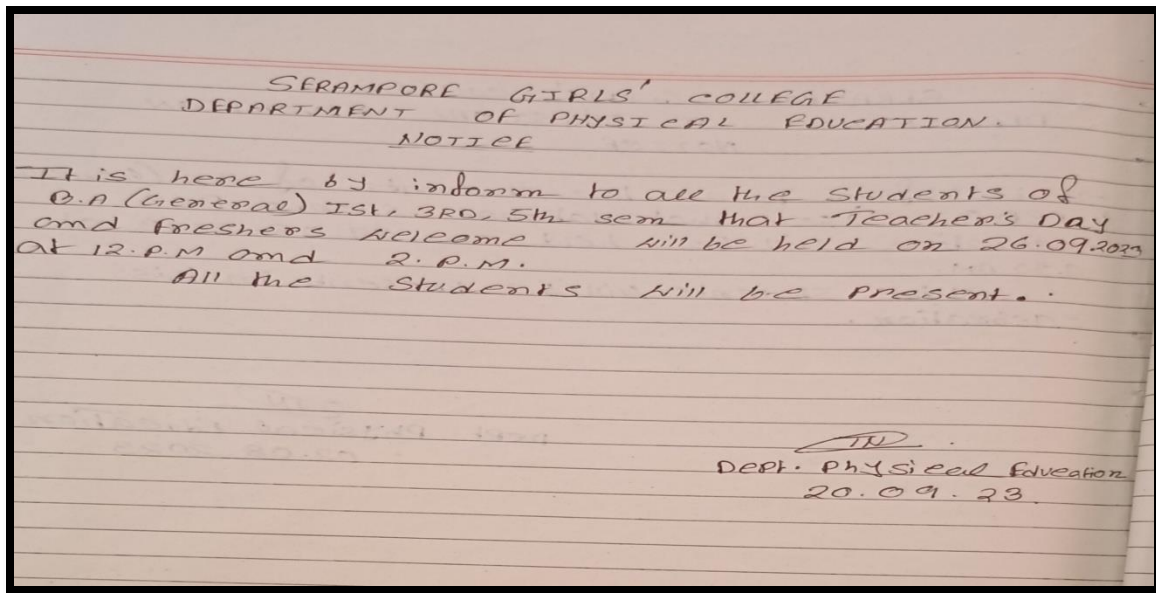 SERAMPORE GIRLS' COLLEGE
DEPARTMENT OF PHYSICAL EDUCATION.
NOTICE
It is here by inform to all the Students of
B.A (General) Ist, 3RD, 5th sem that Teacher's Day
and freshers welcome will be held on 26.09.2023
at 12.P.M and 2.P.M.
All the Students will be present.
Dept. Physical Education
20.09.23